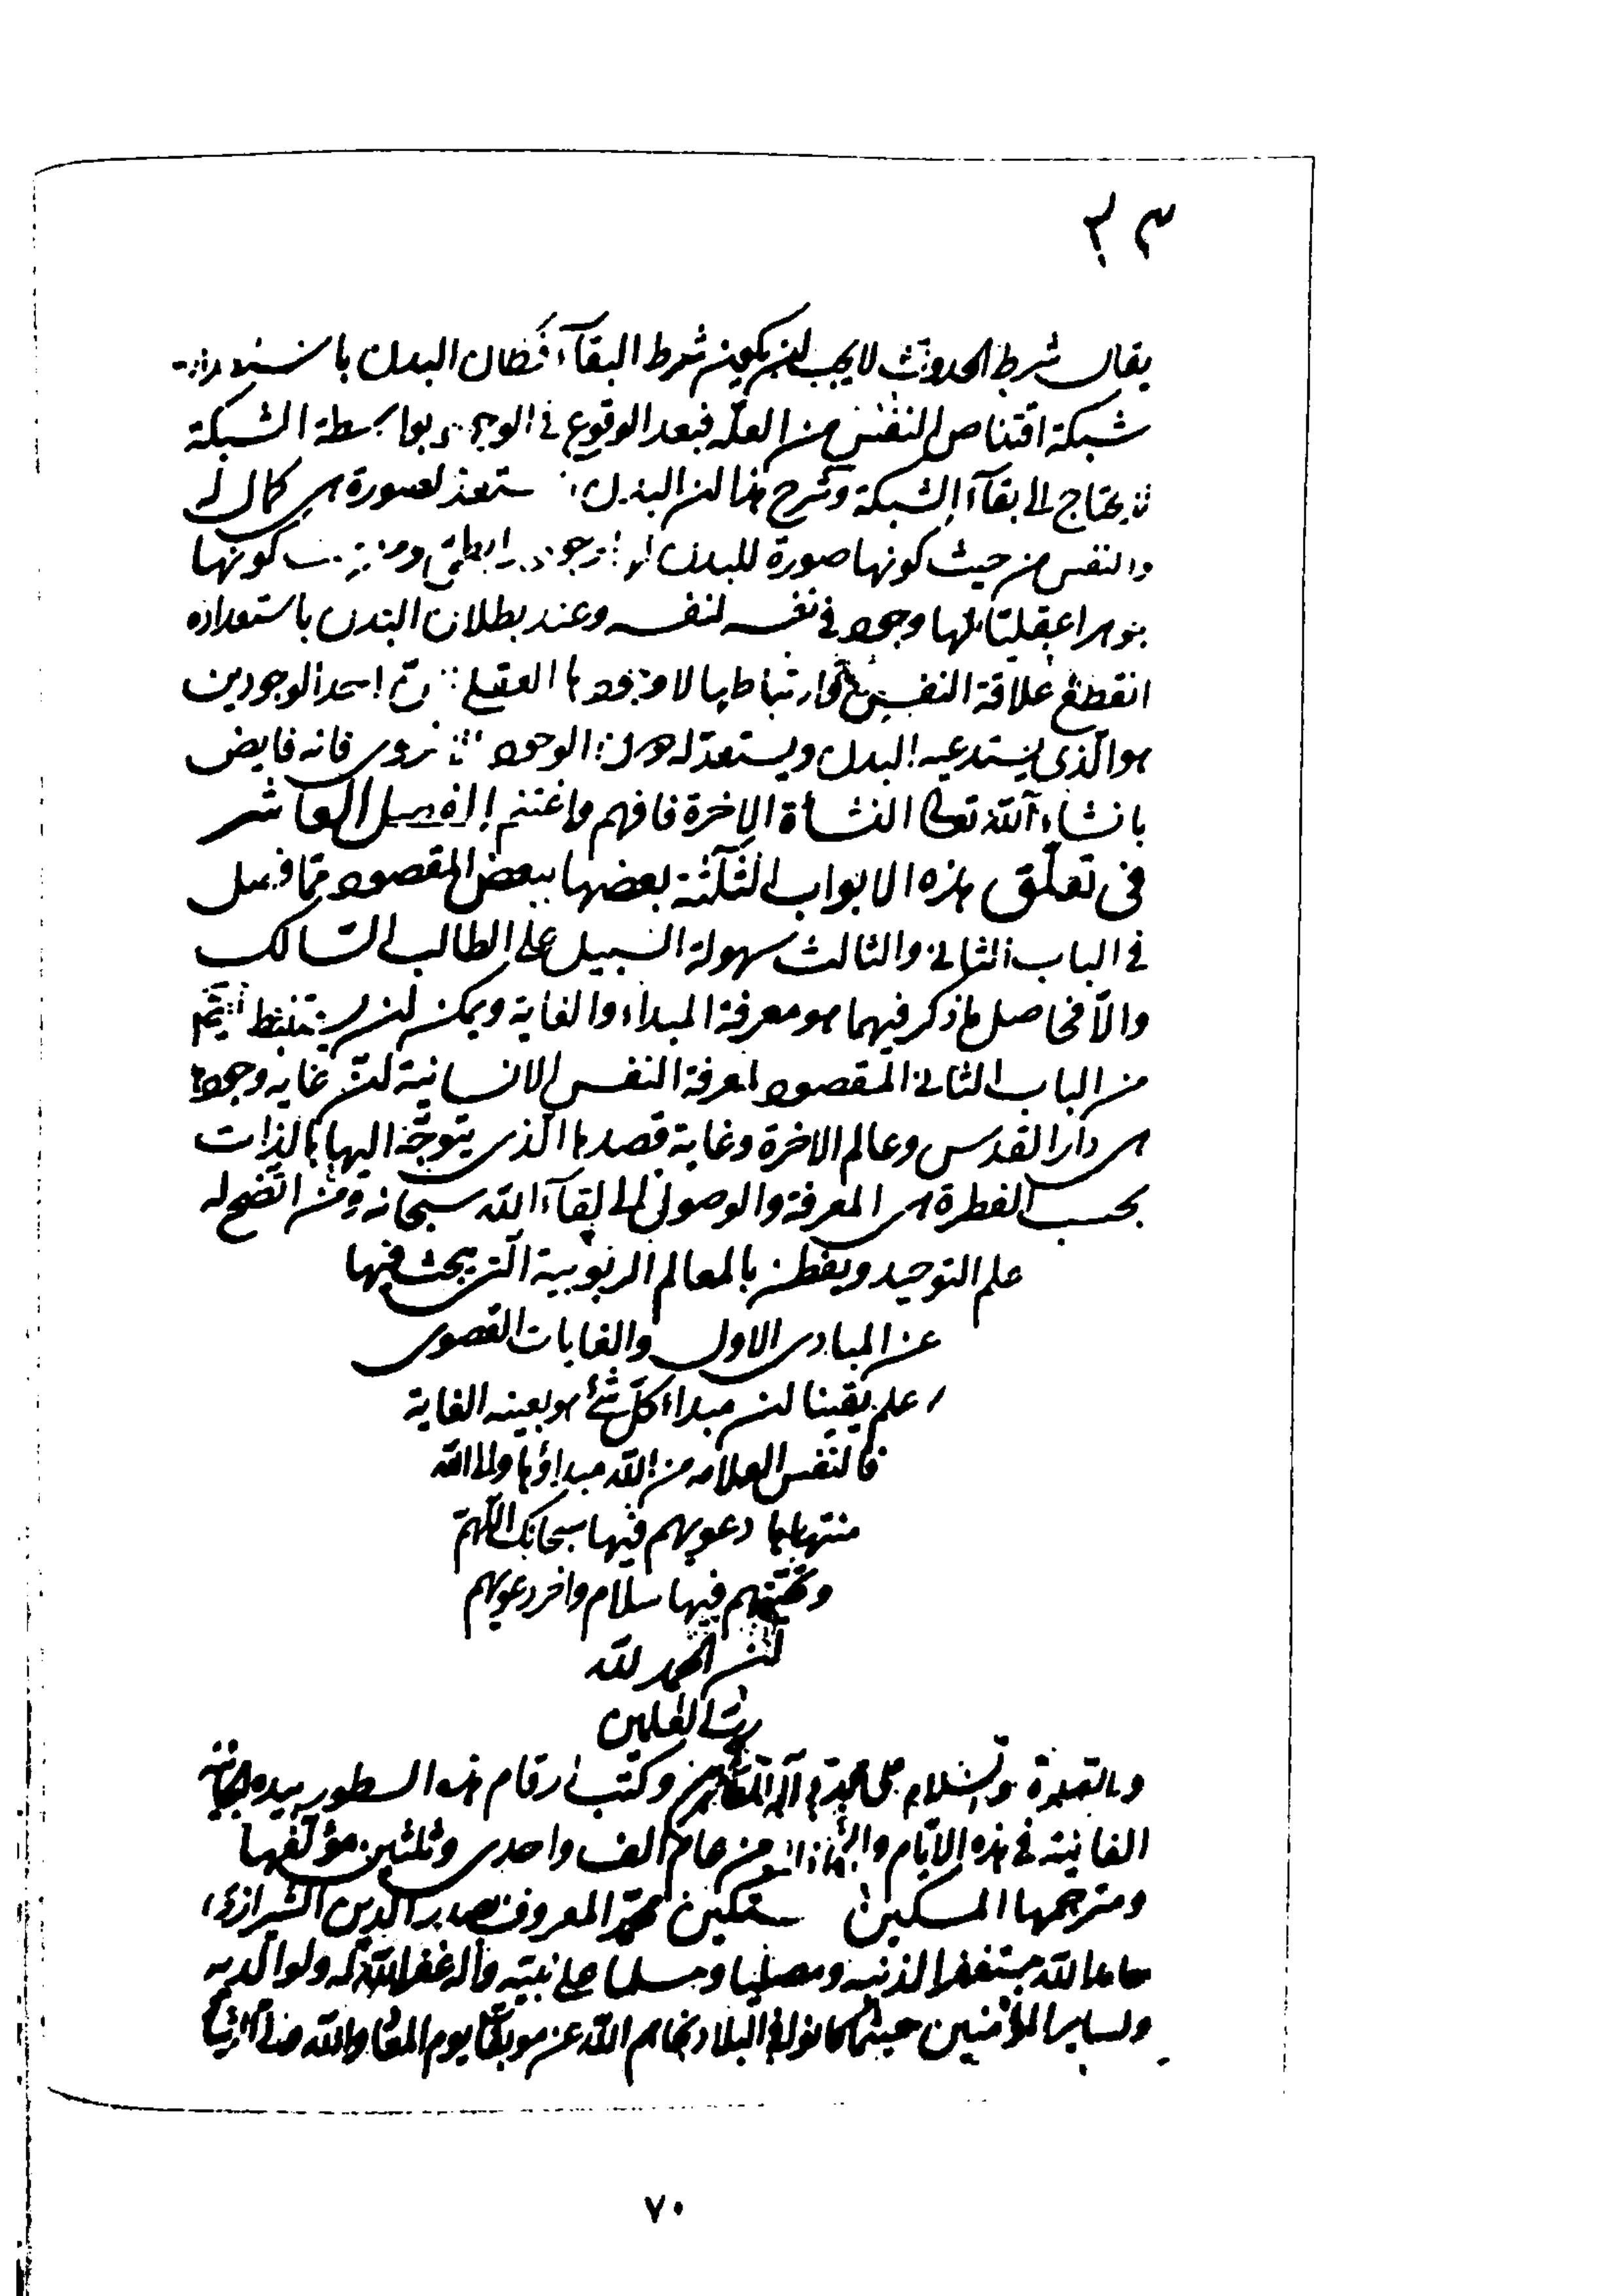 يقال شرط الحدوث لا يجب ان يكون شرط البقآء فكان البدن
شبكة اقتناص النفس من العلة فبعد الوقوع في الوجود بواسطة الشبكة
لا يحتاج الى بقآء الشبكة وشرح هذا ان البدن استعد لصورة هي كمال له
والنفس من حيث كونها صورة للبدن لها وجود رابطى ومن حيث كونها
جوهرا عقليا لها وجود في نفسه لنفسه وعند بطلان البدن باستعداده
انقطع علاقة النفس ارتباطها لا وجودها العقلى احد الوجودين
هو الذي يستدعيه البدن ويستعد له دون الوجود الاخروى فانه فايض
بانشاء الله تعالى النشأة الاخرة فافهم واغتنم الفصل العاشر
في تعلق هذه الابواب الثلثة بعضها ببعض المقصود مما فصل
في الباب الثاني والثالث سهولة السبيل على الطالب السالك
والا فحاصل ما ذكر فيهما هو معرفة المبداء والغاية ويمكن ان يستنبط
من الباب الثاني المقصود معرفة النفس الانسانية لان غاية وجودها
هي دار القدس وعالم الاخرة وغاية قصدها الذي يتوجه اليها بالذات
بحسب الفطرة هي المعرفة والوصول الى لقآء الله سبحانه ومن اتضح له
علم التوحيد وتفطن بالمعالم الربوبية التي يبحث فيها
عن المبادى الاول والغايات القصوى
علم يقينا ان مبداء كل شئ هو بعينه الغاية
فالنفس العلامه من الله مبداؤها والى الله
منتهاها دعويهم فيها سبحانك اللهم
وتحيتهم فيها سلام واخر دعويهم
ان الحمد لله
رب العلمين
والصلوة والسلام على محمد وآله الطاهرين وكتب ارقام هذه السطور بيده الجانية
الفانية في هذه الايام من عام الف واحدى وثلثين مؤلفها
ومترجمها المسكين المستكين محمد المعروف بصدر الدين الشيرازى
حامدا لله مستغفرا لذنبه ومصليا ومسلما على نبيه وآله غفر الله له ولوالديه
ولساير المؤمنين حيثما كانوا في البلاد نجاهم الله عن موبقات يوم المعاد والله
٧٠